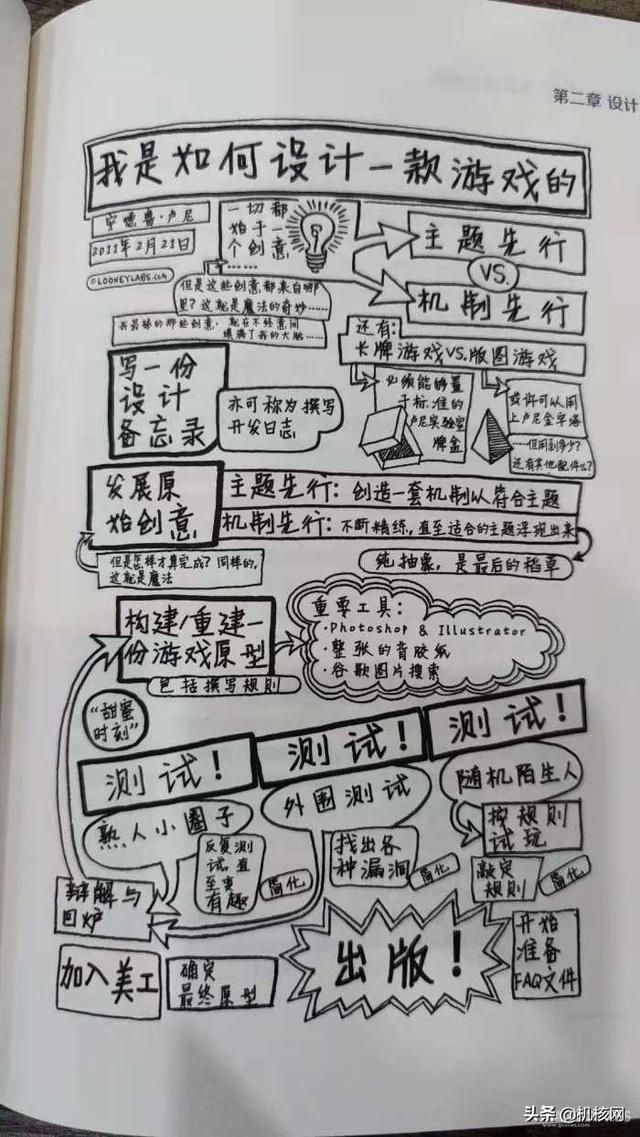 第二章 设计
我是如何设计一款游戏的
安德鲁·卢尼
2011年2月21日
©LOONEYLABS.COM
一切都
始于一
个创意
……
主题先行
VS.
机制先行
但是这些创意都来自哪
里？这就是魔法的奇妙……
我最棒的那些创意，就在不经意间
填满了我的大脑……
还有：
卡牌游戏VS.版图游戏
写一份
设计
备忘录
亦可称为撰写
开发日志
必须能够置
于标准的
卢尼实验室
牌盒
或许可以用
上卢尼金字塔
……但用到多少？
还有其他配件么？
发展原
始创意
主题先行：创造一套机制以符合主题
机制先行：不断精练，直至适合的主题浮现出来
但是怎样才算完成？同样的，
这就是魔法
纯抽象，是最后的稻草
构建/重建一
份游戏原型
包括撰写规则
重要工具：
·Photoshop & Illustrator
·整张的背胶纸
·谷歌图片搜索
“甜蜜
时刻”
测试！
测试！
测试！
熟人小圈子
外围测试
随机陌生人
反复测
试，直
至变
有趣
简化
找出各
种漏洞
简化
按规则
试玩
敲定
规则
简化
辩解与
回炉
加入美工
确定
最终原型
出版！
开始
准备
FAQ文件
头条@机核网